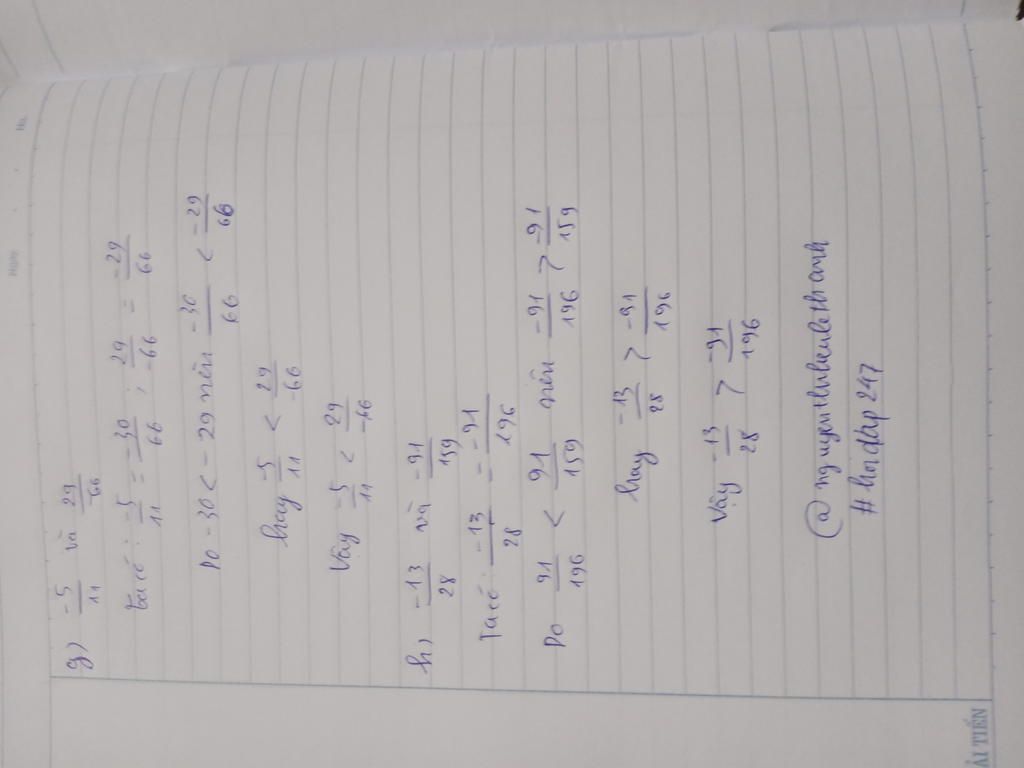 g) \frac{-5}{11} và \frac{29}{66}
Ta có: \frac{-5}{11} = \frac{-30}{66} ; \frac{29}{-66} = \frac{-29}{66}
Do -30 < -29 nên \frac{-30}{66} < \frac{-29}{66}
hay \frac{-5}{11} < \frac{29}{-66}
Vậy \frac{-5}{11} < \frac{29}{-66}
h) \frac{-13}{28} và \frac{-91}{159}
Ta có: \frac{-13}{28} = \frac{-91}{196}
Do \frac{91}{196} < \frac{91}{159} nên \frac{-91}{196} > \frac{-91}{159}
hay \frac{-13}{28} > \frac{-91}{196}
Vậy \frac{-13}{28} > \frac{-91}{196}
#hoidap247
ẢI TIẾN